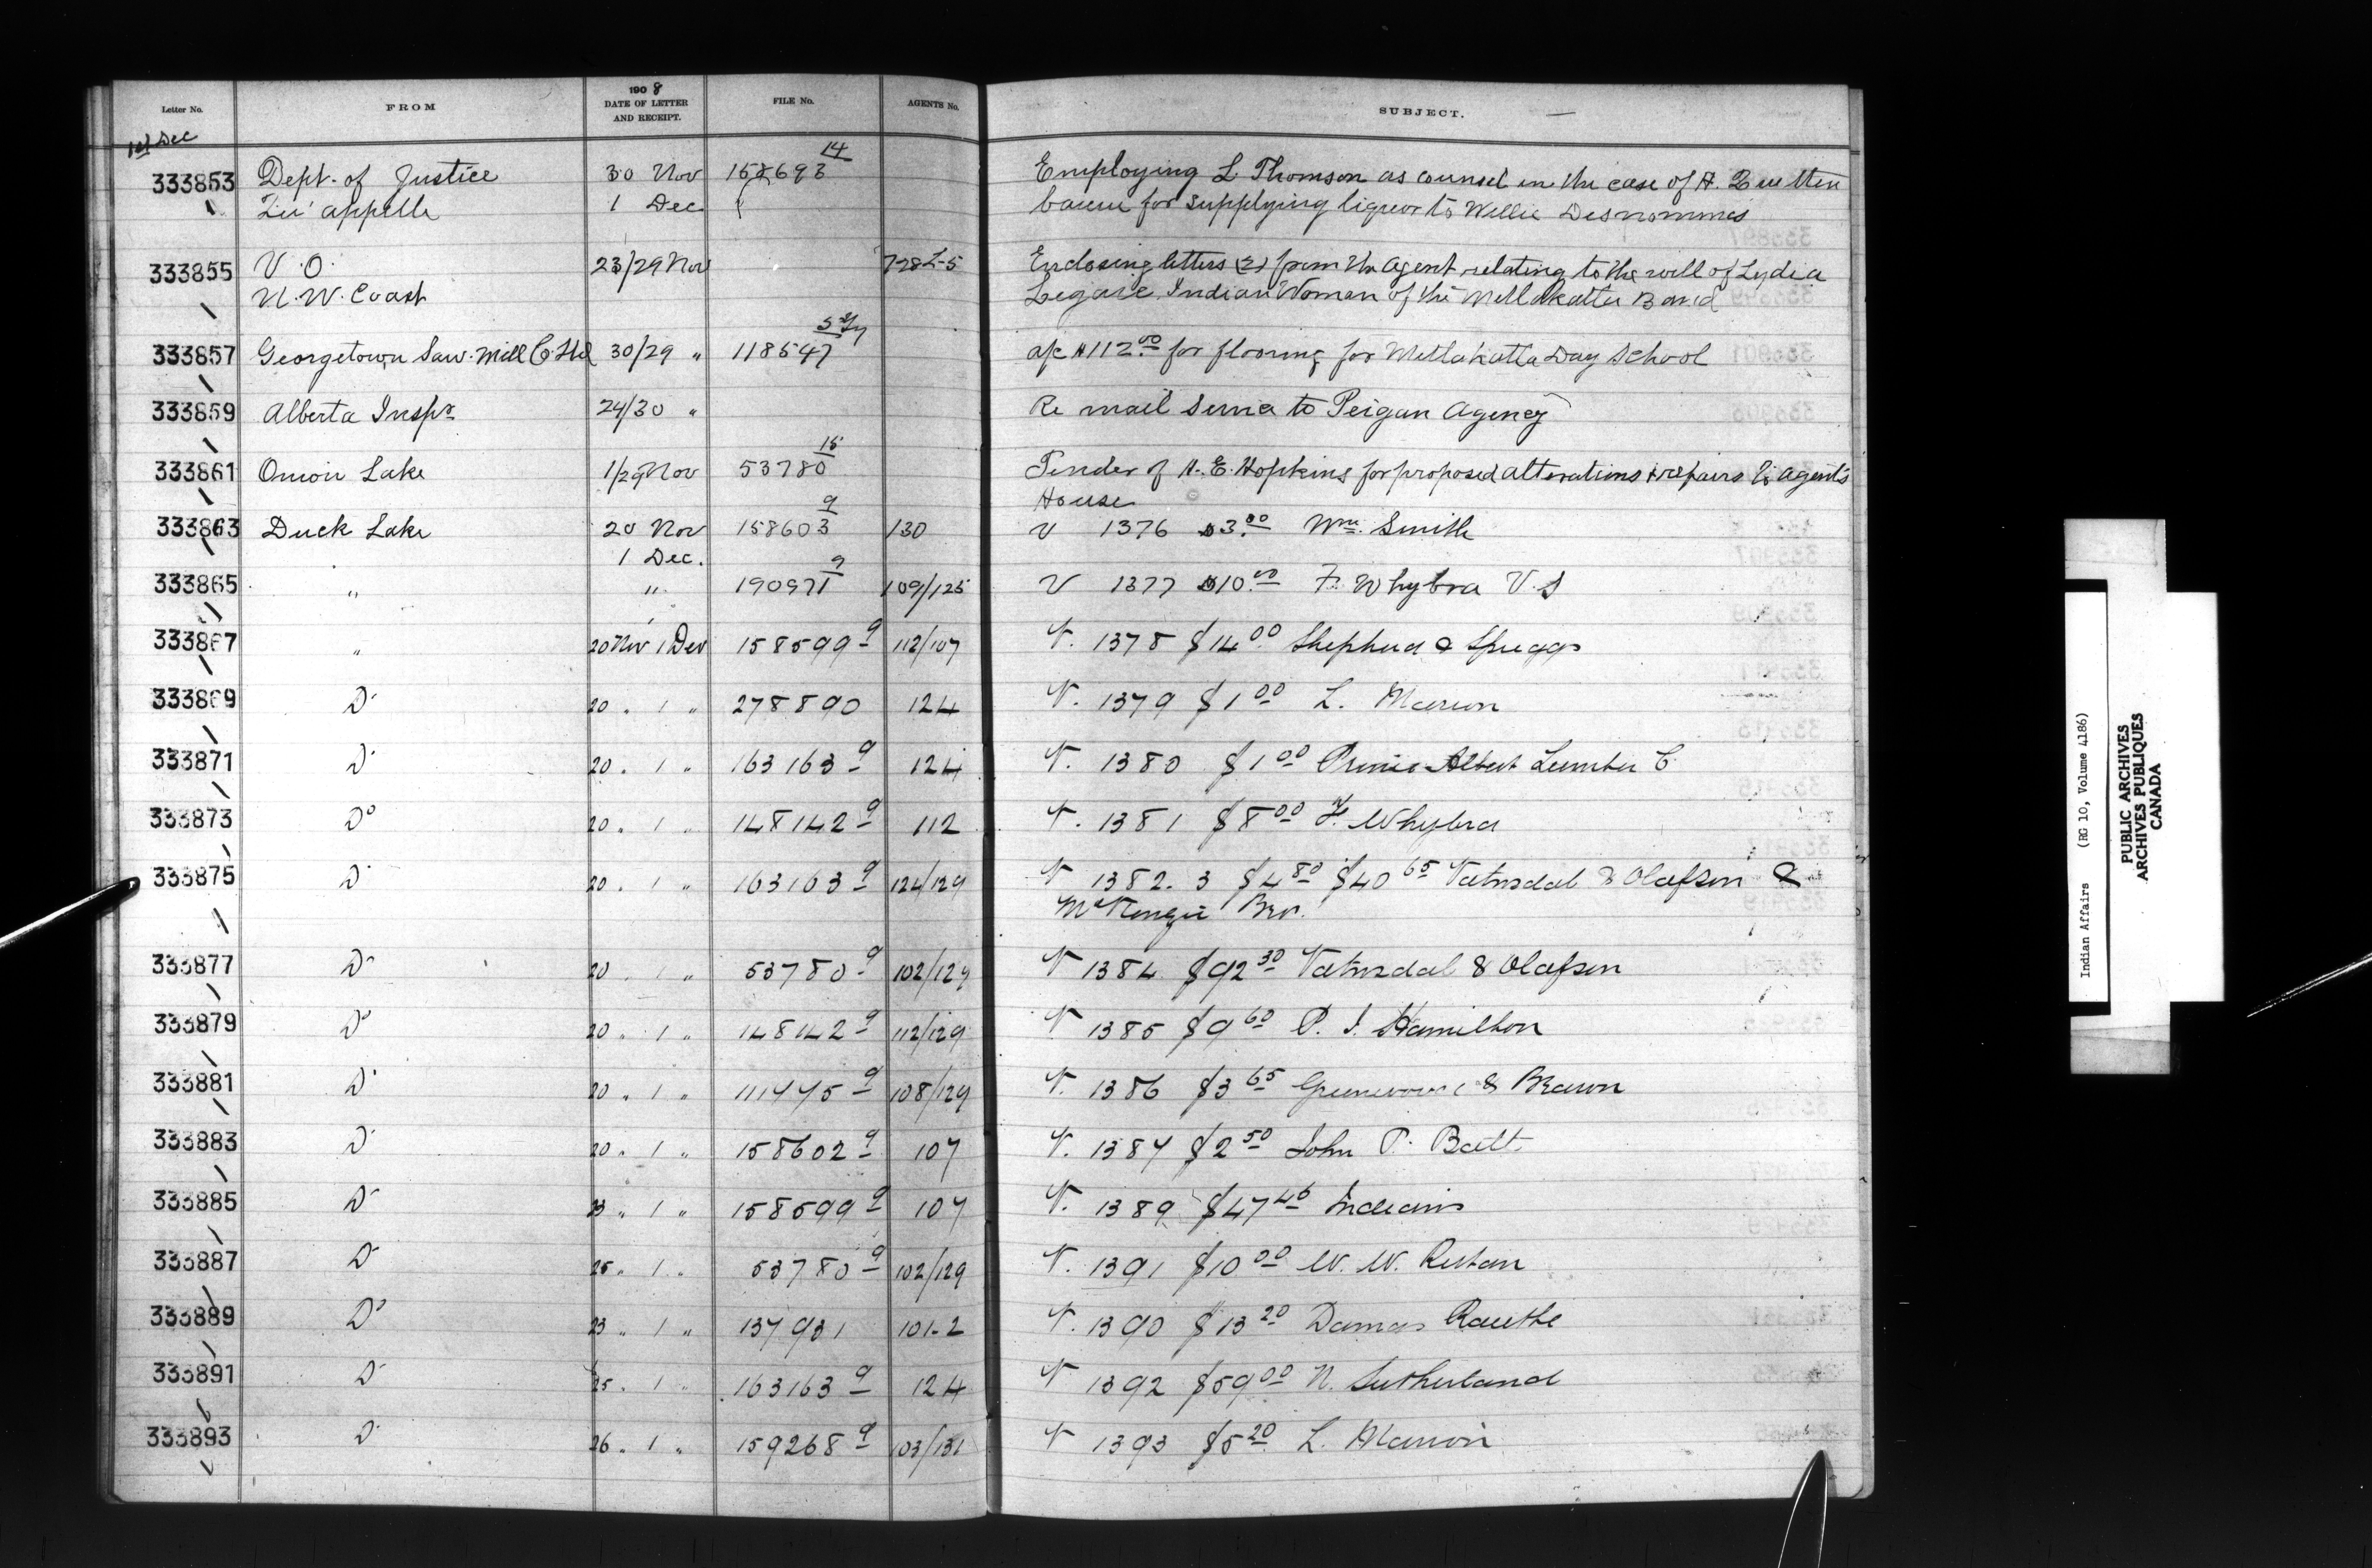 Letter No. FROM 1908 DATE OF LETTER AND RECEIPT. FILE No. AGENTS No. SUBJECT.
1st Dec
333853 Dept. of Justice 30 Nov 158693 14 Employing L Thomson as counsel in the case of A.
Qu'appelle 1 Dec " for supplying liquor to Willie Desnommes
333855 V.O. 23/29 Nov 728 L-5 Enclosing letters (2) from the Agent relating to the will of Lydia
N.W. Coast Legaic Indian Woman of the Metlakatla Band
333857 Georgetown Saw Mill Co. Ltd 30/29 " 118547 a/c $112.00 for flooring for Metlakatla Day School
333859 Alberta Inspr. 24/30 " Re mail service to Peigan Agency
333861 Onion Lake 1/29 Nov 53780 15 Tender of H. E. Hopkins for proposed alterations & repairs to agent's
House
333863 Duck Lake 20 Nov 158603 9 130 V 1376 $3.00 Wm. Smith
1 Dec.
333865 " " 190971 9 109/125 V 1377 $10.00 F. Whybra V.S
333867 " 20 Nov 1 Dec 158599 9 112/107 V. 1378 $14.00 Shepherd & Spriggs
333869 Do 20 " 1 " 278890 124 V. 1379 $1 00 L. Marion
333871 Do 20 " 1 " 163163 9 124 V. 1380 $1 00 Prince Albert Lumber C.
333873 Do 20 " 1 " 148142 9 112 V. 1381 $8 00 F. Whybra
333875 Do 20 " 1 " 163163 9 124/129 V 1382. 3 $4 80 $40 65 Vatnsdal & Olafson &
McKenzie Bro.
333877 Do 20 " 1 " 53780 9 102/129 V 1384 $92 30 Vatnsdal & Olafson
333879 Do 20 " 1 " 148142 9 112/129 V 1385 $9 60 P. J. Hamilton
333881 Do 20 " 1 " 111475 9 108/129 V. 1386 $3 65 & Brown
333883 Do 20 " 1 " 158602 9 107 V. 1387 $2 50 John P.
333885 Do 23 " 1 " 158599 9 107 V. 1389 $47 45 Indians
333887 Do 25 " 1 " 53780 9 102/129 V. 1391 $10 00 W. W. Rutan
333889 Do 23 " 1 " 137931 101-2 V. 1390 $13 20 Damas
333891 Do 25 " 1 " 163163 9 124 V 1392 $59 00 N. Sutherland
333893 Do 26 " 1 " 159268 9 103/131 V 1393 $5 20 L. Marion
Indian Affairs (RG 10, Volume 4186)
PUBLIC ARCHIVES
ARCHIVES PUBLIQUES
CANADA